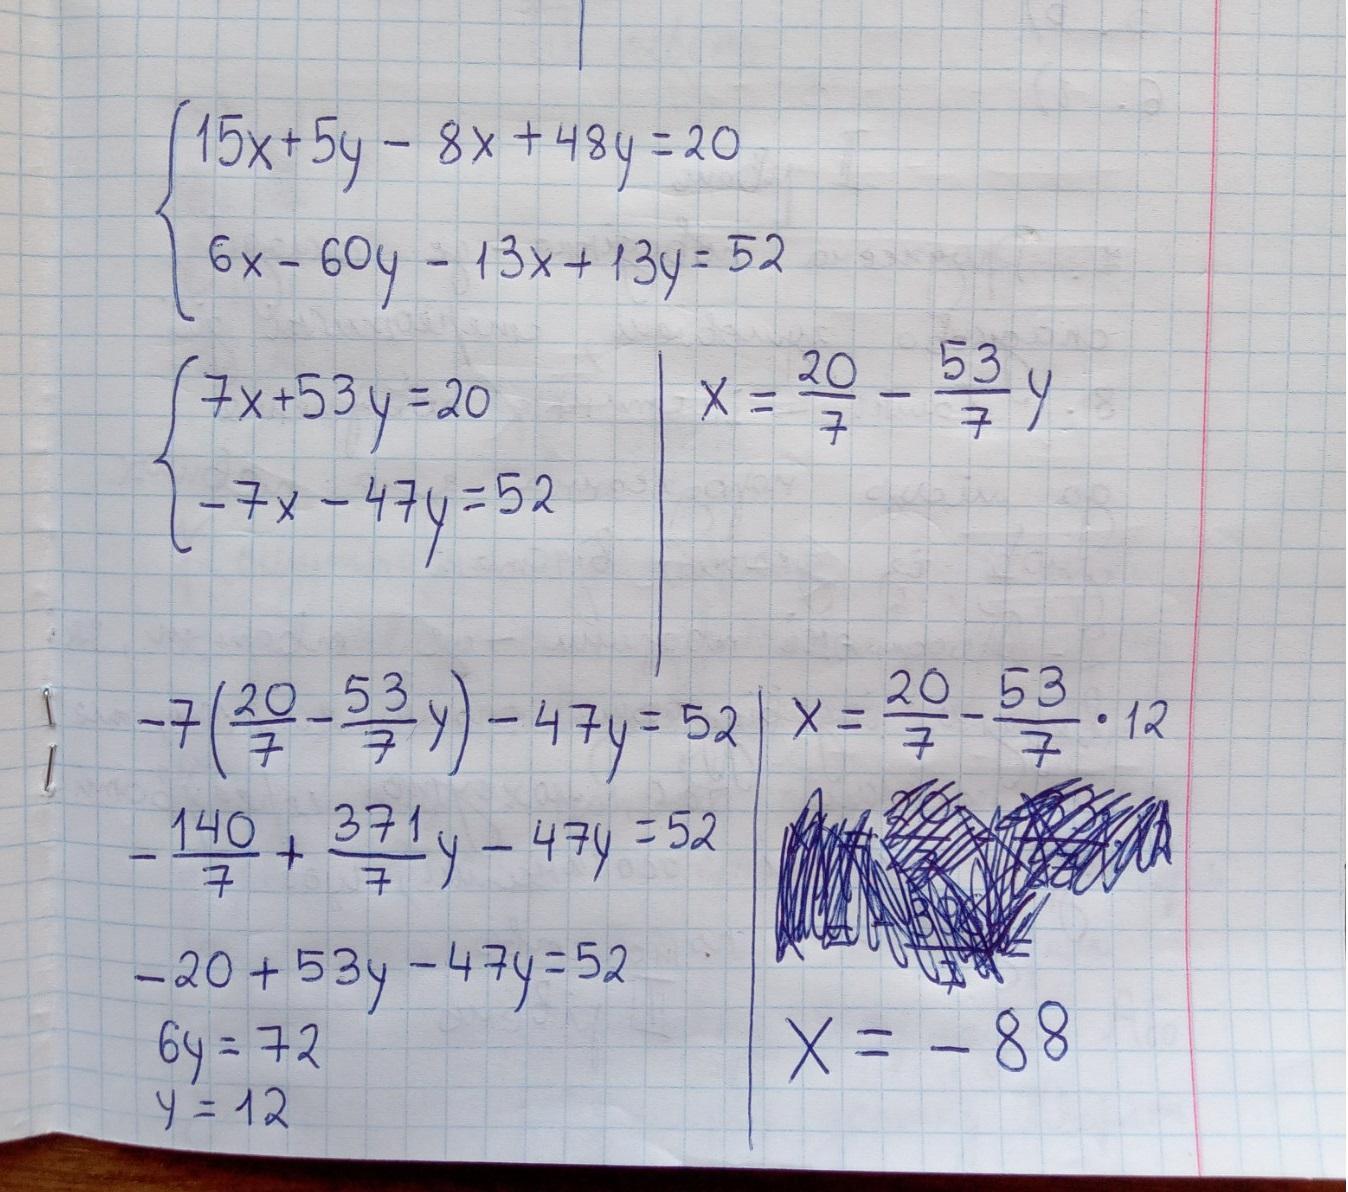 15x+5y - 8x + 48y = 20
6x - 60y - 13x + 13y = 52
7x+53y = 20
-7x - 47y = 52
x = 20/7 - 53/7 y
-7(20/7 - 53/7 y) - 47y = 52
-140/7 + 371/7 y - 47y = 52
-20 + 53y - 47y = 52
6y = 72
y = 12
x = 20/7 - 53/7 · 12
x = - 88